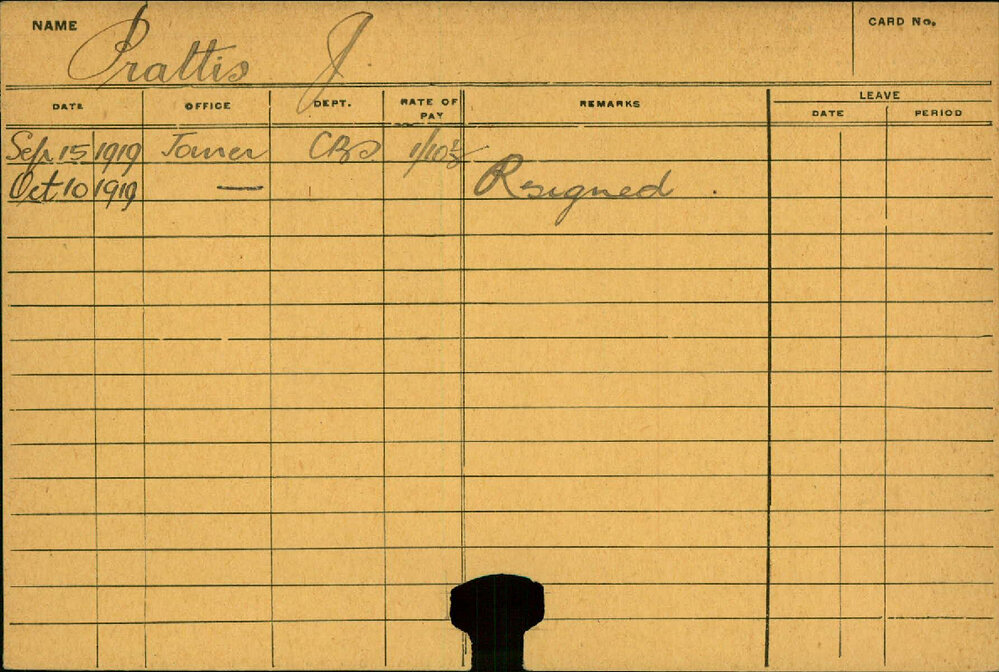 NAME Prattis J. CARD No.
DATE OFFICE DEPT. RATE OF PAY REMARKS LEAVE
DATE PERIOD
Sep. 15 1919 Joiner CRS 1/10½
Oct 10 1919 — Resigned .